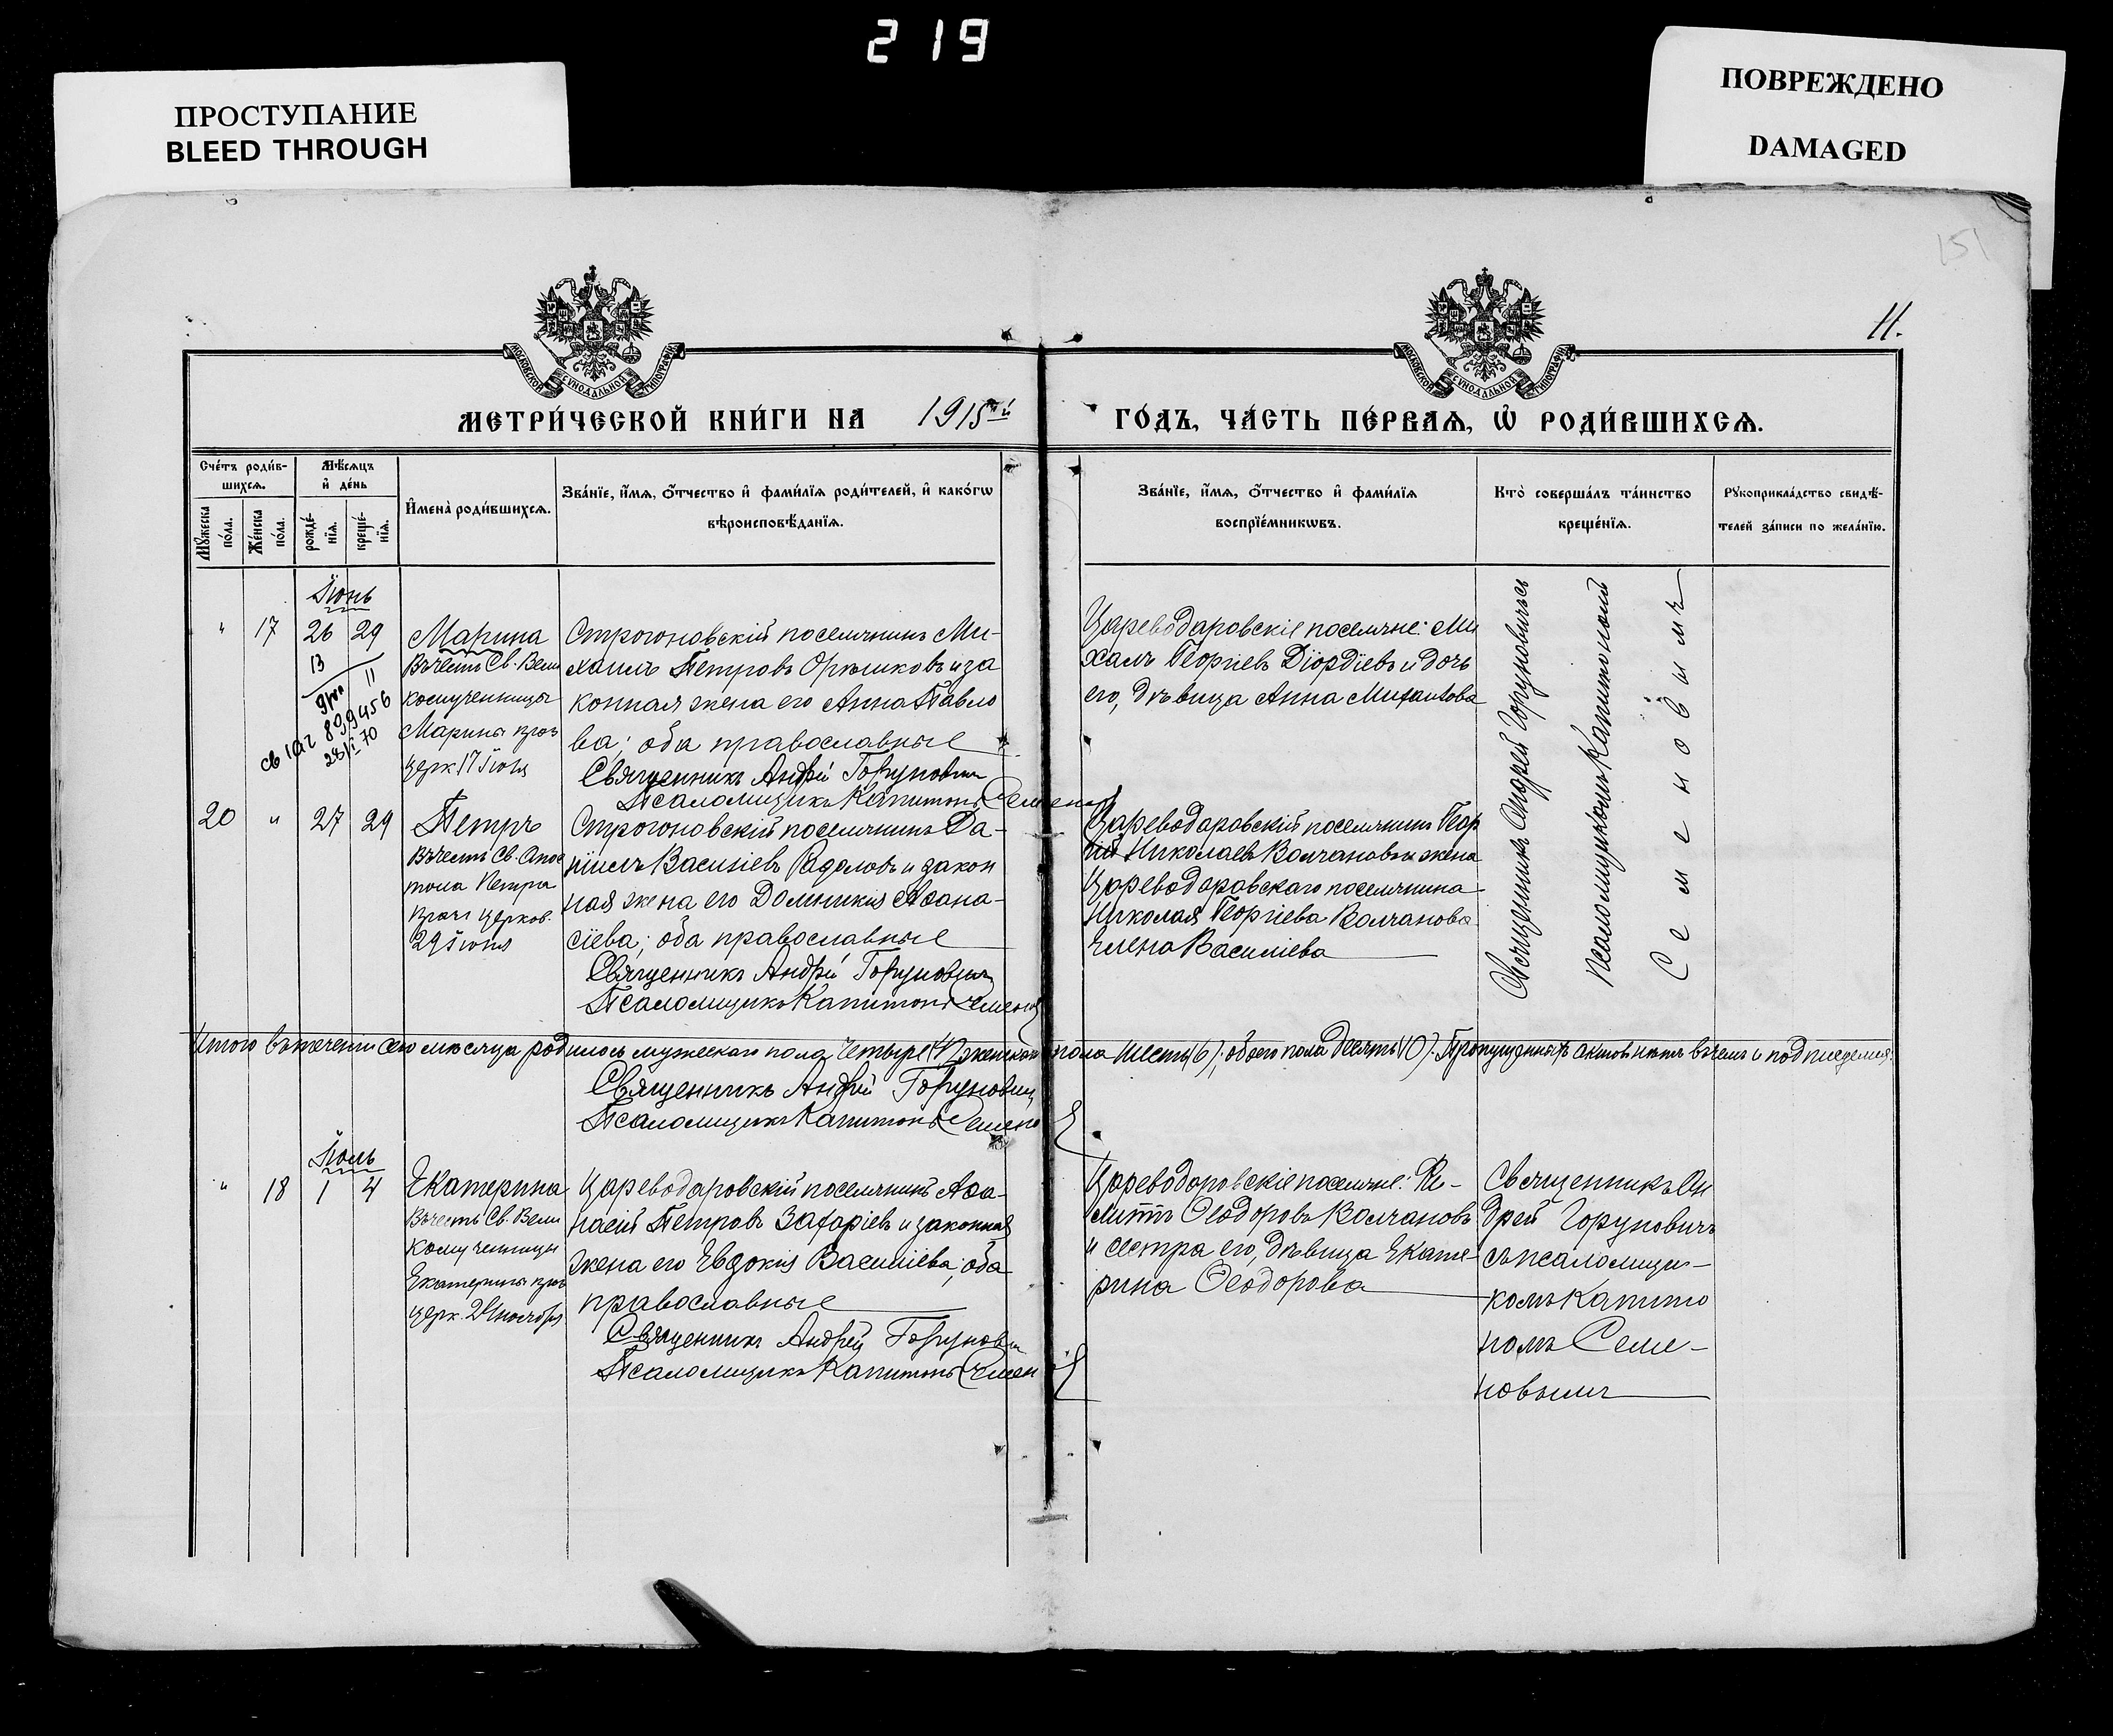 219
ПРОСТУПАНИЕ
BLEED THROUGH
ПОВРЕЖДЕНО
DAMAGED
151
11.
МОСКОВСКОЙ СѴНОДАЛЬНОЙ ТИПОГРАФІИ
МОСКОВСКОЙ СѴНОДАЛЬНОЙ ТИПОГРАФІИ
МЕТРИ́ЧЕСКОЙ КНИ́ГИ НА 1915ый ГО́ДЪ, ЧА́СТЬ ПЕ́РВАѦ, Ѡ҆ РОДИ́ВШИХСѦ.
Сче́тъ роди́в-
шихсѧ.
Мѣ́сѧцъ
и҆ де́нь
Мꙋ́жеска по́ла.
Же́нска по́ла.
рожде́-
нїѧ.
креще́-
нїѧ.
И҆мена̀ роди́вшихсѧ.
Зва́нїе, и҆́мѧ, ѻ҆́тчество и҆ фами́лїѧ роди́телей, и҆ како́гѡ
вѣроисповѣ́данїѧ.
Зва́нїе, и҆́мѧ, ѻ҆́тчество и҆ фами́лїѧ
воспрїе́мникѡвъ.
Кто̀ соверша́лъ та́инство
креще́нїѧ.
Рꙋкоприкла́дство свидѣ́-
телей за́писи по жела́нїю.
Іюнь
" 17 26 29
Марина
Въ честь Св. Вели
комученицы
Марины празд
церк 17 іюля
28/I 70
Строгоновскій поселянинъ Ми-
хаилъ Петровъ Орѣшковъ и за
конная жена его Анна Павло
ва; оба православные
Священникъ Андрей Горуновичъ
Псаломщикъ Капитонъ Семеновъ
Цареводаровскіе поселяне: Ми
халъ Георгіевъ Діордіевъ и дочь
его, дѣвица Анна Михаилова
Священникъ Андрей Горуновичъ съ
Псаломщикомъ Капитономъ
Семеновымъ
20 " 27 29
Петръ
Въ честь Св. Апос
тола Петра
празд церков.
29 іюня
Строгоновскій поселянинъ Да-
ніилъ Васиіевъ Радоловъ и закон
ная жена его Домникія Аѳана-
сіева; оба православные
Священникъ Андрей Горуновичъ
Псаломщикъ Капитонъ Семеновъ
Цареводаровскій поселянинъ Геор
гій Николаевъ Волчановъ и жена
Цареводаровскаго поселянина
Николая Георгіева Волчанова
Елена Василіева
Итого въ теченіи сего мѣсяца родилось мужескаго пола четыре (4), женскаго пола шесть (6), обоего пола десять (10). Пропущенныхъ актовъ нѣтъ въ чемъ и подписуемся:
Священникъ Андрей Горуновичъ
Псаломщикъ Капитонъ Семеновъ
Іюль
" 18 1 4
Екатерина
Въ честь Св. Вели
комученицы
Екатерины празд
церк. 24 ноября
Цареводаровскій поселянинъ Аѳа-
насій Петровъ Захаріевъ и законная
жена его Евдокія Василіева; оба
православные
Священникъ Андрей Горуновичъ
Псаломщикъ Капитонъ Семеновъ
Цареводаровскіе поселяне: Фи-
липпъ Ѳеодоровъ Волчановъ
и сестра его, дѣвица Екате-
рина Ѳеодорова
Священникъ Ан
дрей Горуновичъ
съ псаломщи-
комъ Капито
номъ Семе-
новымъ